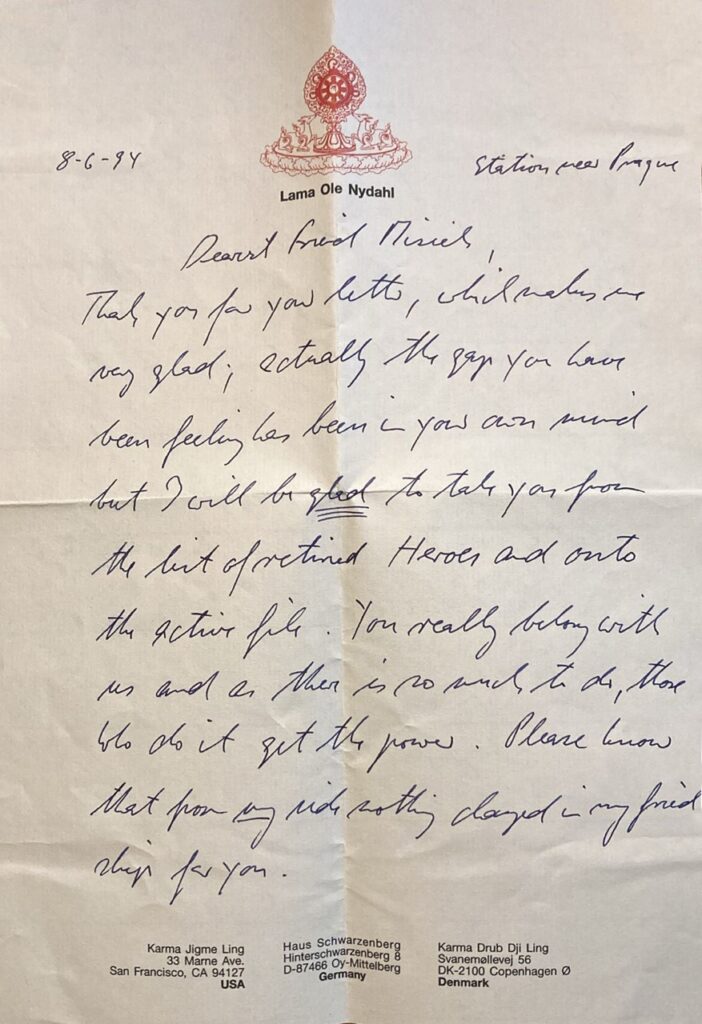 8-6-94
Station near Prague
Lama Ole Nydahl
Dearest friend
Thank you for your letter, which makes me
very glad; actually the gap you have
been feeling has been in your own mind
but I will be glad to take you from
the list of retired Heroes and onto
the active file. You really belong with
us and as there is so much to do, those
who do it get the power. Please know
that from my side nothing changed in my friend
ship for you.
Karma Jigme Ling
33 Marne Ave.
San Francisco, CA 94127
USA
Haus Schwarzenberg
Hinterschwarzenberg 8
D-87466 Oy-Mittelberg
Germany
Karma Drub Dji Ling
Svanemøllevej 56
DK-2100 Copenhagen Ø
Denmark